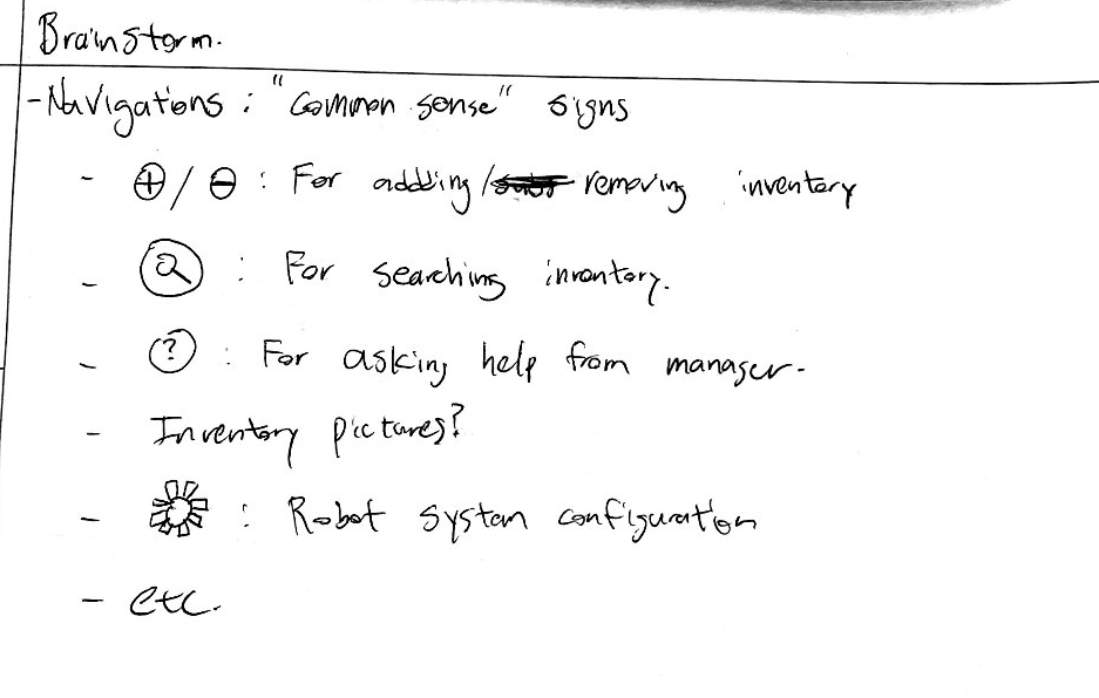 Brainstorm.
- Navigations : "Common sense" signs
- ⊕ / ⊖ : For addding / removing inventory
- : For searching inventory.
- ? : For asking help from manager.
- Inventory pictures?
- : Robot system configuration
- etc.